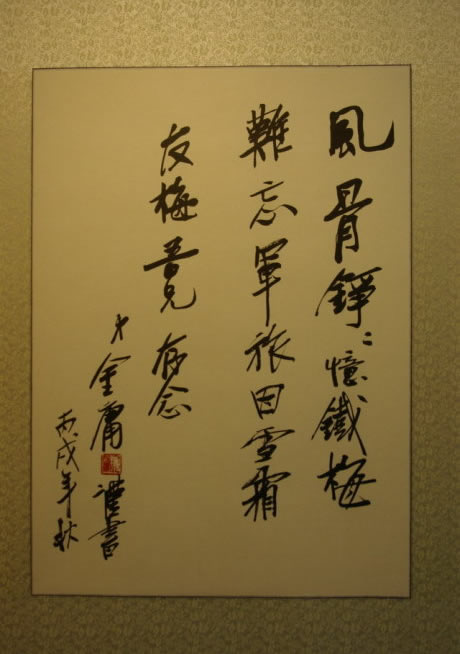 風骨錚〻憶鐵梅
難忘軍旅因雪霜
友梅吾兄 存念
弟 金庸 謹書
丙戌年秋